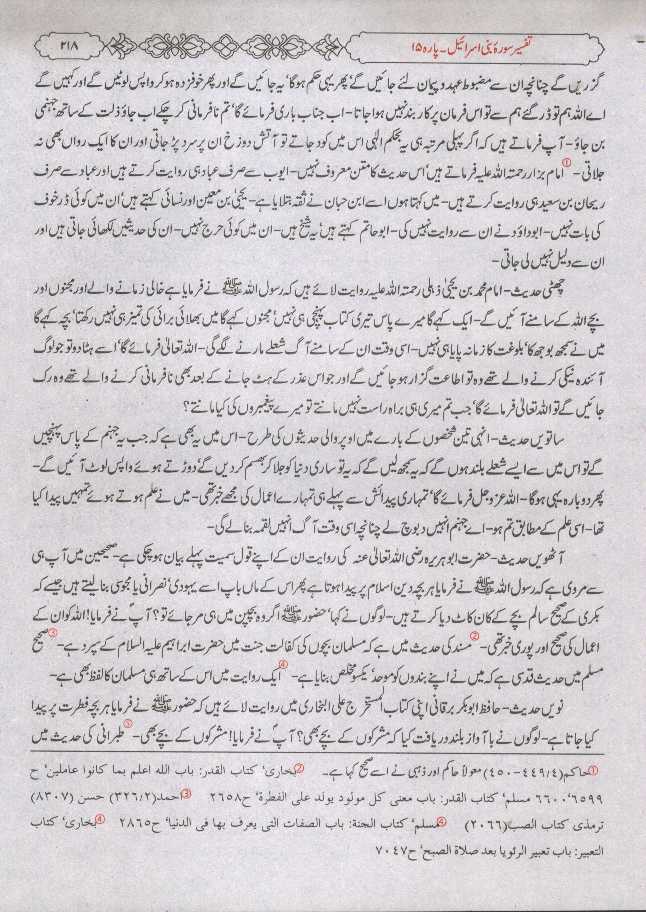 تفسیر سورۂ بنی اسرائیل۔ پارہ ۱۵
۲۱۸
گزریں گے چنانچہ ان سے مضبوط عہد و پیمان لئے جائیں گے‘ پھر یہی حکم ہوگا‘ یہ جائیں گے اور پھر خوفزدہ ہو کر واپس لوٹیں گے اور کہیں گے
اے اللہ ہم تو ڈر گئے ہم سے تو اس فرمان پر کار بند نہیں ہوا جاتا۔ اب جناب باری فرمائے گا‘ تم نافرمانی کر چکے اب جاؤ ذلت کے ساتھ جہنمی
بن جاؤ۔ آپ فرماتے ہیں کہ اگر پہلی مرتبہ ہی یہ بحکم الٰہی اس میں کود جاتے تو آتش دوزخ ان پر سرد پڑ جاتی اور ان کا ایک رواں بھی نہ
جلاتی۔ ① امام بزار رحمتہ اللہ علیہ فرماتے ہیں‘ اس حدیث کا متن معروف نہیں۔ ایوب سے صرف عباد ہی روایت کرتے ہیں اور عباد سے صرف
ریحان بن سعید ہی روایت کرتے ہیں۔ میں کہتا ہوں اسے ابن حبان نے ثقہ بتلایا ہے۔ یحییٰ بن معین اور نسائی کہتے ہیں‘ ان میں کوئی ڈر خوف
کی بات نہیں۔ ابوداؤد نے ان سے روایت نہیں کی۔ ابوحاتم کہتے ہیں‘ یہ شیخ ہیں۔ ان میں کوئی حرج نہیں۔ ان کی حدیثیں لکھائی جاتی ہیں اور
ان سے دلیل نہیں لی جاتی۔
چھٹی حدیث۔ امام محمد بن یحییٰ ذہلی رحمتہ اللہ علیہ روایت لائے ہیں کہ رسول اللہ ﷺ نے فرمایا ہے خالی زمانے والے اور مجنوں اور
بچے اللہ کے سامنے آئیں گے۔ ایک کہے گا میرے پاس تیری کتاب پہنچی ہی نہیں‘ مجنوں کہے گا میں بھلائی برائی کی تمیز ہی نہیں رکھتا‘ بچہ کہے گا
میں نے سمجھ بوجھ کا‘ بلوغت کا زمانہ پایا ہی نہیں۔ اسی وقت ان کے سامنے آگ شعلے مارنے لگے گی۔ اللہ تعالیٰ فرمائے گا‘ اسے ہٹا دو تو جو لوگ
آئندہ نیکی کرنے والے تھے وہ تو اطاعت گزار ہو جائیں گے اور جو اس عذر کے ہٹ جانے کے بعد بھی نافرمانی کرنے والے تھے وہ رک
جائیں گے تو اللہ تعالیٰ فرمائے گا‘ جب تم میری ہی براہ راست نہیں مانتے تو میرے پیغمبروں کی کیا مانتے؟
ساتویں حدیث۔ انہی تین شخصوں کے بارے میں اوپر والی حدیثوں کی طرح۔ اس میں یہ بھی ہے کہ جب یہ جہنم کے پاس پہنچیں
گے تو اس میں سے ایسے شعلے بلند ہوں گے کہ یہ سمجھ لیں گے کہ یہ تو ساری دنیا کو جلا کر بھسم کر دیں گے‘ دوڑتے ہوئے واپس لوٹ آئیں گے۔
پھر دوبارہ یہی ہوگا۔ اللہ عزوجل فرمائے گا‘ تمہاری پیدائش سے پہلے ہی تمہارے اعمال کی مجھے خبر تھی۔ میں نے علم ہوتے ہوئے تمہیں پیدا کیا
تھا۔ اسی علم کے مطابق تم ہو۔ اے جہنم انہیں دبوچ لے چنانچہ اسی وقت آگ انہیں لقمہ بنا لے گی۔
آٹھویں حدیث۔ حضرت ابو ہریرہ رضی اللہ تعالیٰ عنہ کی روایت ان کے اپنے قول سمیت پہلے بیان ہو چکی ہے۔ صحیحین میں آپ ہی
سے مروی ہے کہ رسول اللہ ﷺ نے فرمایا ہر بچہ دین اسلام پر پیدا ہوتا ہے پھر اس کے ماں باپ اسے یہودی‘ نصرانی یا مجوسی بنا لیتے ہیں جیسے کہ
بکری کے صحیح سالم بچے کے کان کاٹ دیا کرتے ہیں۔ لوگوں نے کہا‘ حضور ﷺ اگر وہ بچپن میں ہی مر جائے تو؟ آپ نے فرمایا! اللہ کو ان کے
اعمال کی صحیح اور پوری خبر تھی۔ ② مسند کی حدیث میں ہے کہ مسلمان بچوں کی کفالت جنت میں حضرت ابراہیم علیہ السلام کے سپرد ہے۔ ③ صحیح
مسلم میں حدیث قدسی ہے کہ میں نے اپنے بندوں کو موحد‘ یکسو مخلص بنایا ہے۔ ④ ایک روایت میں اس کے ساتھ ہی مسلمان کا لفظ بھی ہے۔
نویں حدیث۔ حافظ ابوبکر برقانی اپنی کتاب المستخرج علی البخاری میں روایت لائے ہیں کہ حضور ﷺ نے فرمایا ہر بچہ فطرت پر پیدا
کیا جاتا ہے۔ لوگوں نے باآواز بلند دریافت کیا کہ مشرکوں کے بچے بھی؟ آپ نے فرمایا! مشرکوں کے بچے بھی۔ ⑤ طبرانی کی حدیث میں
① حاکم (۴/۴۴۹-۴۵۰) معولاً حاکم اور ذہبی نے اسے صحیح کہا ہے۔ ② بخاری‘ کتاب القدر: باب الله اعلم بما کانوا عاملین‘ ح
۶۵۹۹‘ ۶۶۰۰ مسلم‘ کتاب القدر: باب معنی کل مولود یولد علی الفطرة‘ ح۲۶۵۸ ③ احمد (۲/۳۲۶) حسن (۸۳۰۷)
ترمذی کتاب الصب (۲۰۶۶) ④ مسلم‘ کتاب الجنة: باب الصفات التی یعرف بها فی الدنیا‘ ح۲۸۶۵ ④ بخاری‘ کتاب
التعبیر: باب تعبیر الرئویا بعد صلاة الصبح‘ ح۷۰۴۷